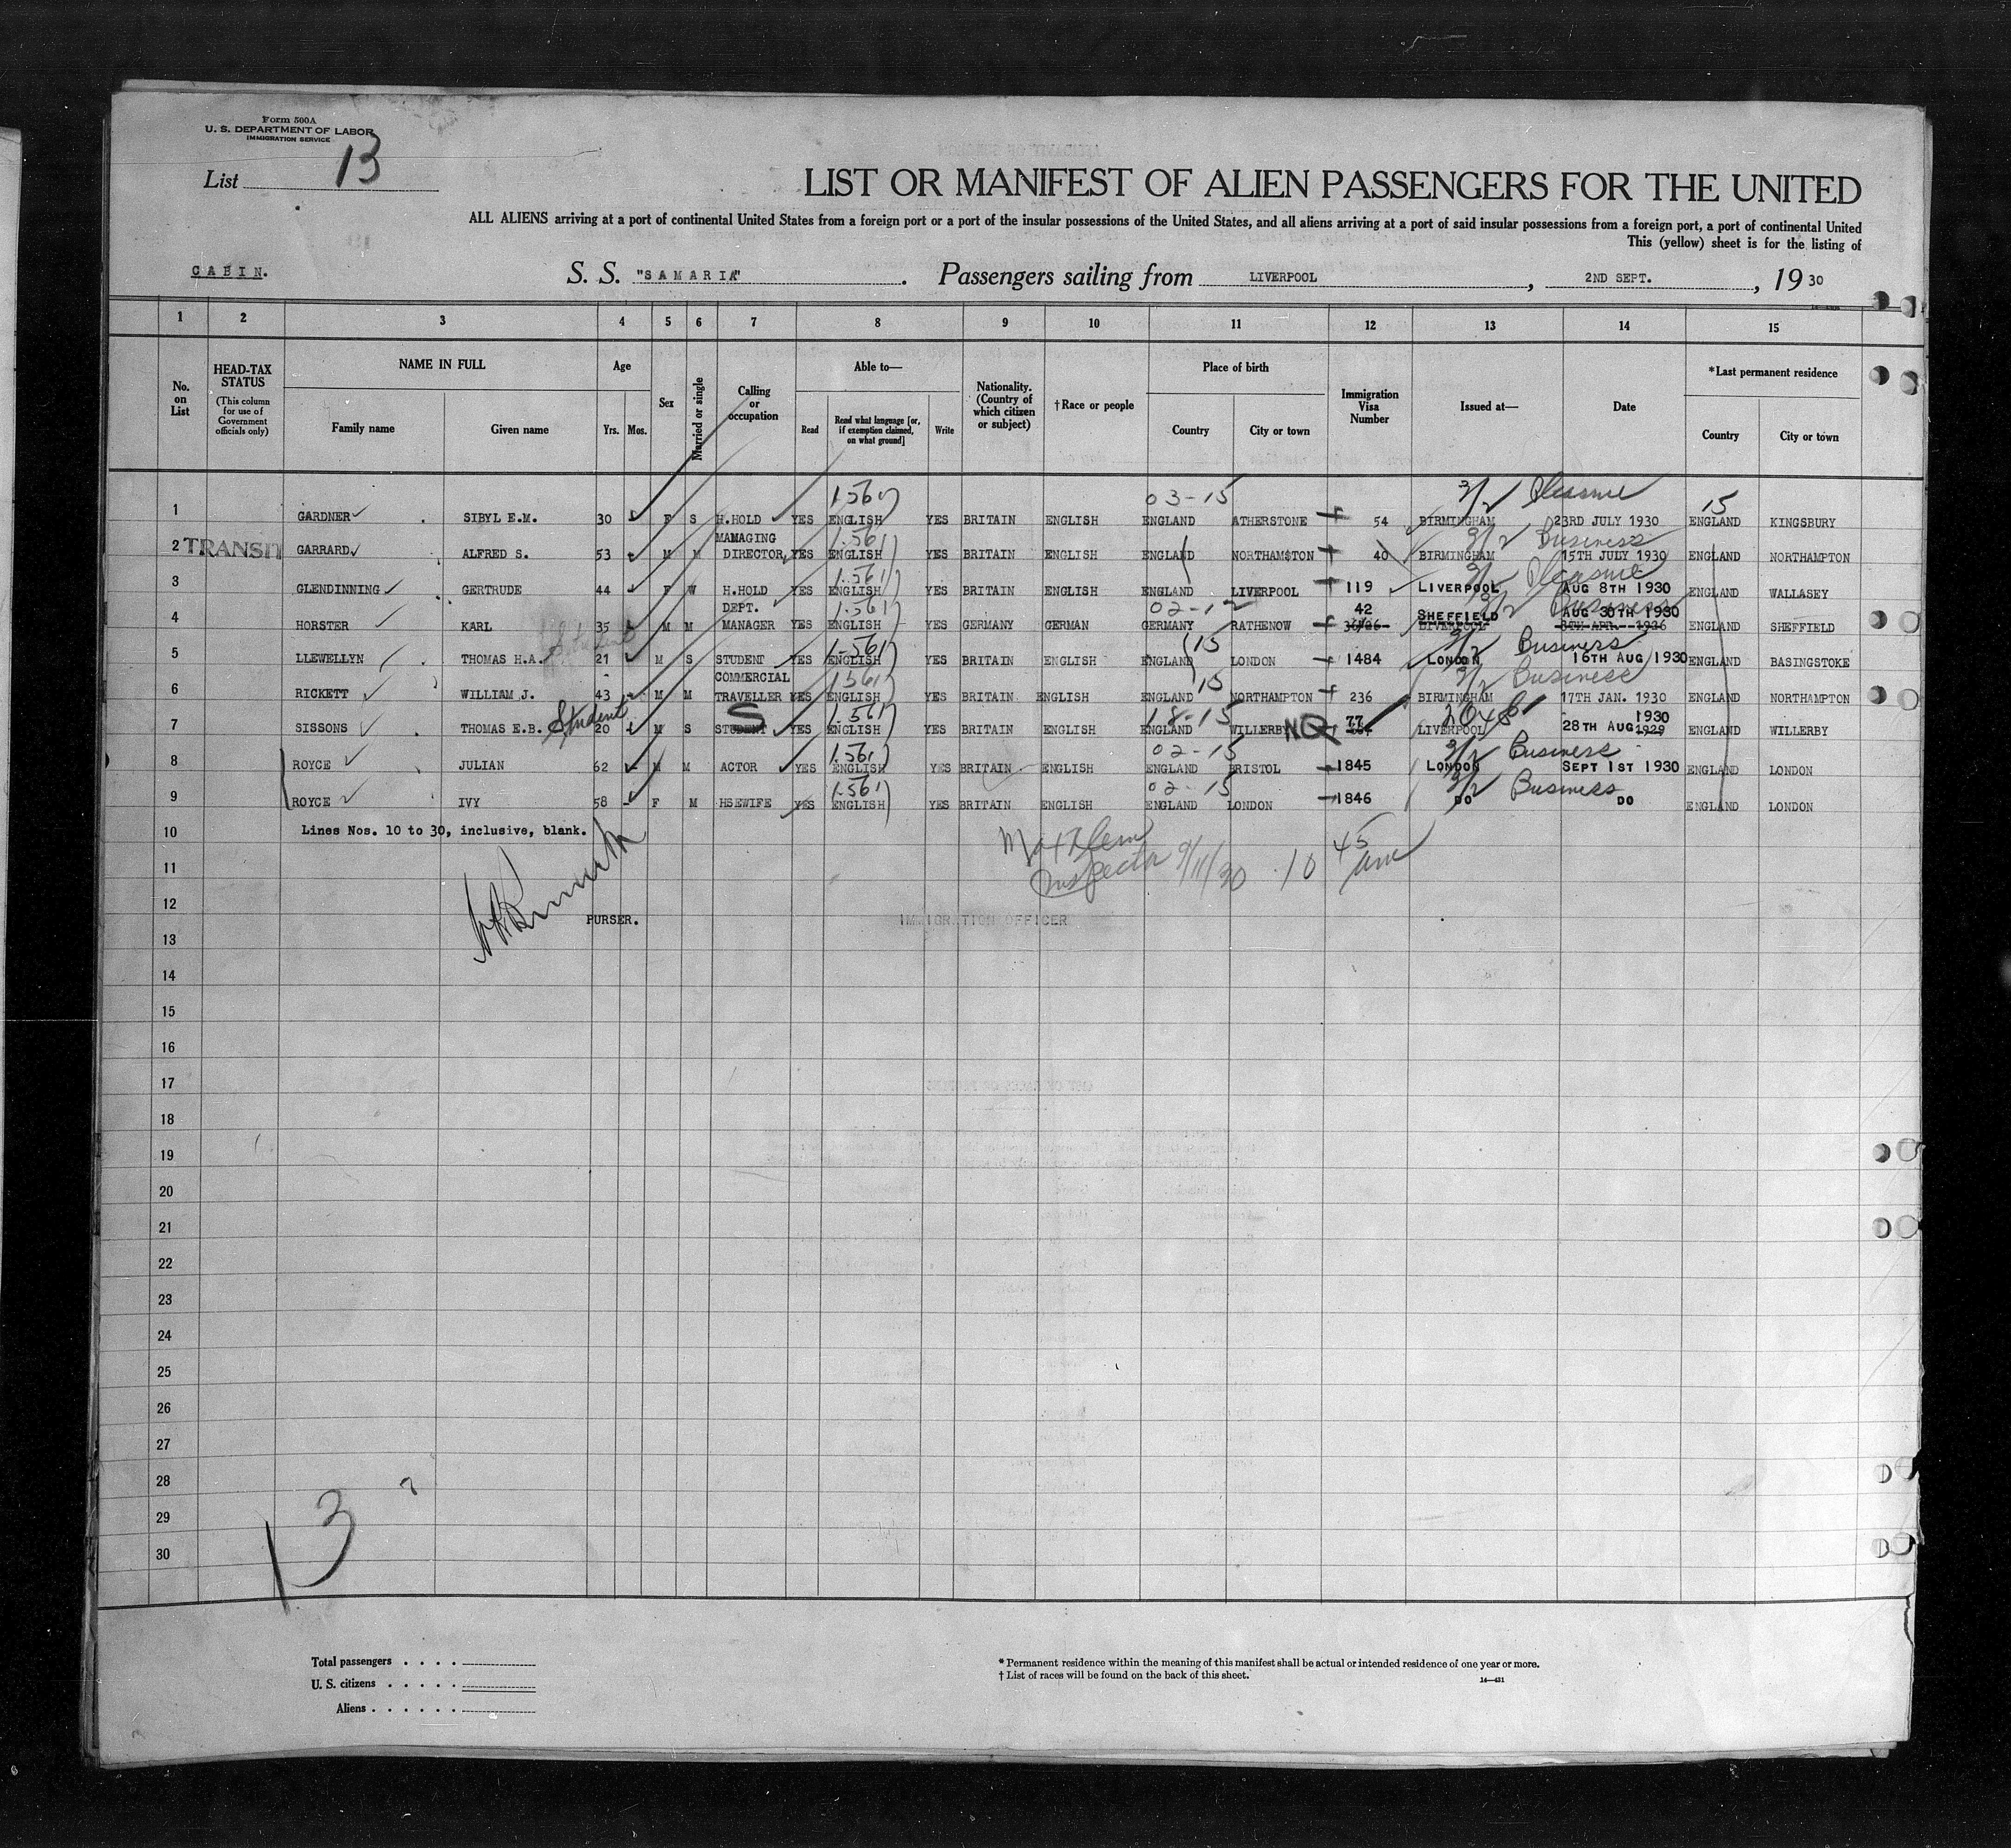 Form 500A
U. S. DEPARTMENT OF LABOR
IMMIGRATION SERVICE
List 13
LIST OR MANIFEST OF ALIEN PASSENGERS FOR THE UNITED
ALL ALIENS arriving at a port of continental United States from a foreign port or a port of the insular possessions of the United States, and all aliens arriving at a port of said insular possessions from a foreign port, a port of continental United
This (yellow) sheet is for the listing of
CABIN. S. S. "SAMARIA". Passengers sailing from LIVERPOOL, 2ND SEPT., 1930
1 2 3 4 5 6 7 8 9 10 11 12 13 14 15
No. on List
HEAD-TAX STATUS
(This column for use of Government officials only)
NAME IN FULL
Family name Given name
Age
Yrs. Mos.
Sex
Married or single
Calling or occupation
Able to—
Read
Read what language [or, if exemption claimed, on what ground]
Write
Nationality. (Country of which citizen or subject)
†Race or people
Place of birth
Country City or town
Immigration Visa Number
Issued at—
Date
*Last permanent residence
Country City or town
1561 03-15 3/2 Pleasure 15
1 GARDNER SIBYL E.M. 30 F S H.HOLD YES ENGLISH YES BRITAIN ENGLISH ENGLAND ATHERSTONE 54 BIRMINGHAM 23RD JULY 1930 ENGLAND KINGSBURY
MANAGING 1561 3/2 Business
2 TRANSIT GARRARD ALFRED S. 53 M M DIRECTOR YES ENGLISH YES BRITAIN ENGLISH ENGLAND NORTHAMSTON 40 BIRMINGHAM 15TH JULY 1930 ENGLAND NORTHAMPTON
1561 3/2 Pleasure
3 GLENDINNING GERTRUDE 44 F W H.HOLD YES ENGLISH YES BRITAIN ENGLISH ENGLAND LIVERPOOL 119 LIVERPOOL AUG 8TH 1930 ENGLAND WALLASEY
DEPT. 1561 02-12 42 SHEFFIELD 3/2 Business AUG 30TH 1930
4 HORSTER KARL 35 M M MANAGER YES ENGLISH YES GERMANY GERMAN GERMANY RATHENOW LIVERPOOL 8TH APR. 1926 ENGLAND SHEFFIELD
Student 1561 15 3/2 Business
5 LLEWELLYN THOMAS H.A. 21 M S STUDENT YES ENGLISH YES BRITAIN ENGLISH ENGLAND LONDON 1484 LONDON 16TH AUG 1930 ENGLAND BASINGSTOKE
COMMERCIAL 1561 15 3/2 Business
6 RICKETT WILLIAM J. 43 M M TRAVELLER YES ENGLISH YES BRITAIN ENGLISH ENGLAND NORTHAMPTON 236 BIRMINGHAM 17TH JAN. 1930 ENGLAND NORTHAMPTON
Student S 1561 18-15 NQ 77 1930
7 SISSONS THOMAS E.B. 20 M S STUDENT YES ENGLISH YES BRITAIN ENGLISH ENGLAND WILLERBY LIVERPOOL 28TH AUG 1929 ENGLAND WILLERBY
1561 02-15 3/2 Business
8 ROYCE JULIAN 62 M M ACTOR YES ENGLISH YES BRITAIN ENGLISH ENGLAND BRISTOL 1845 LONDON SEPT 1ST 1930 ENGLAND LONDON
1561 02-15 3/2 Business
9 ROYCE IVY 58 F M HSEWIFE YES ENGLISH YES BRITAIN ENGLISH ENGLAND LONDON 1846 DO DO ENGLAND LONDON
10 Lines Nos. 10 to 30, inclusive, blank.
11 Inspector 9/11/30 10 45 am
12 PURSER. IMMIGRATION OFFICER
13
14
15
16
17
18
19
20
21
22
23
24
25
26
27
28
29
30
13
Total passengers
U. S. citizens
Aliens
* Permanent residence within the meaning of this manifest shall be actual or intended residence of one year or more.
† List of races will be found on the back of this sheet.
14—431